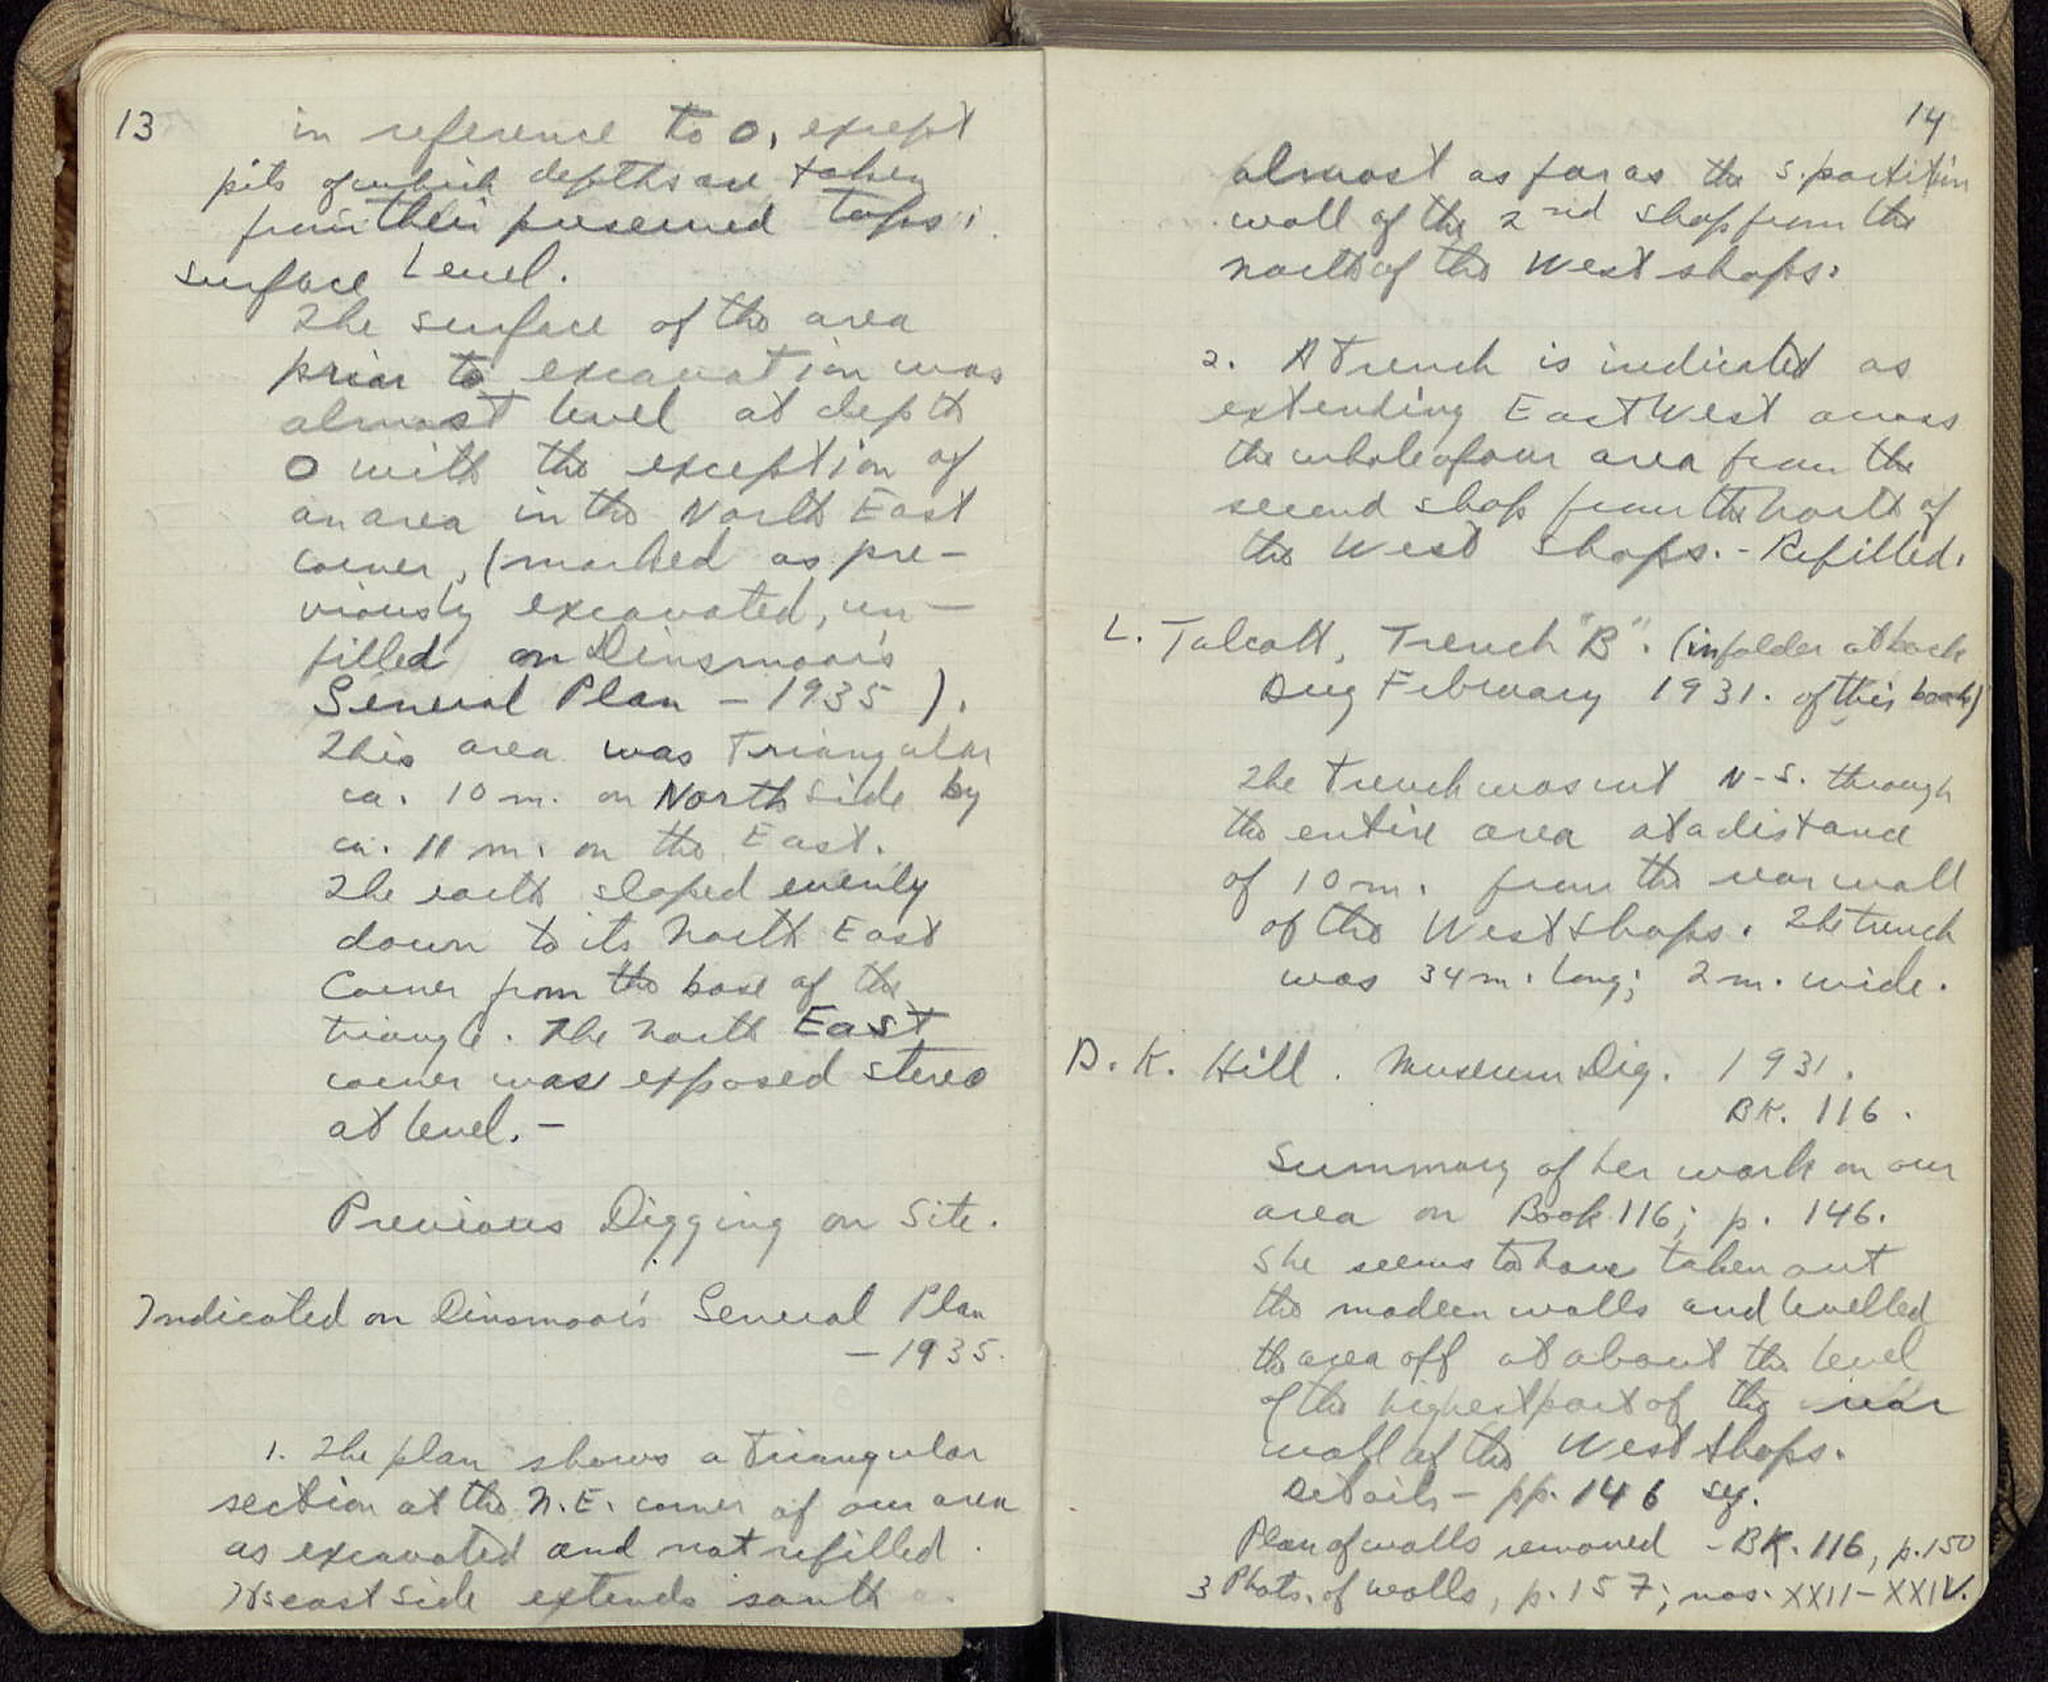 13
in reference to 0, except
pits of which depths are taken
from their preserved tops;
surface Level.
The surface of the area
prior to excavation was
almost level at depth
0 with the exception of
an area in the North East
corner, (marked as pre-
viously excavated, un-
filled on Dinsmoor's
General Plan - 1935).
This area was Triangular
ca. 10 m. on North side by
ca. 11 m. on the East.
The earth sloped evenly
down to its North East
Corner from the base of the
triangle. The North East
corner was exposed stereo
at level. -
Previous Digging on Site.
Indicated on Dinsmoor's General Plan
- 1935.
1. The plan shows a Triangular
section at the N.E. corner of our area
as excavated and not refilled.
Its east side extends south
14
almost as far as the S. partition
wall of the 2nd shop from the
north of the West shops.
2. A Trench is indicated as
extending East West across
the whole of our area from the
second shop from the north of
the West Shops. - Refilled.
L. Talcott, Trench "B". (in folder at back
Dug February 1931. of this book)
The Trench was cut N-S. through
the entire area at a distance
of 10 m. from the rear wall
of the West Shops. The trench
was 34 m. long; 2 m. wide.
D. K. Hill. Museum Dig. 1931.
BK. 116.
Summary of her work on our
area on Book 116; p. 146.
She seems to have taken out
the modern walls and levelled
the area off at about the level
of the highest part of the rear
wall of the West Shops.
Details - pp. 146 sq.
Plan of walls removed - BK. 116, p. 150
3 Phots. of walls, p. 157; nos. XXII-XXIV.